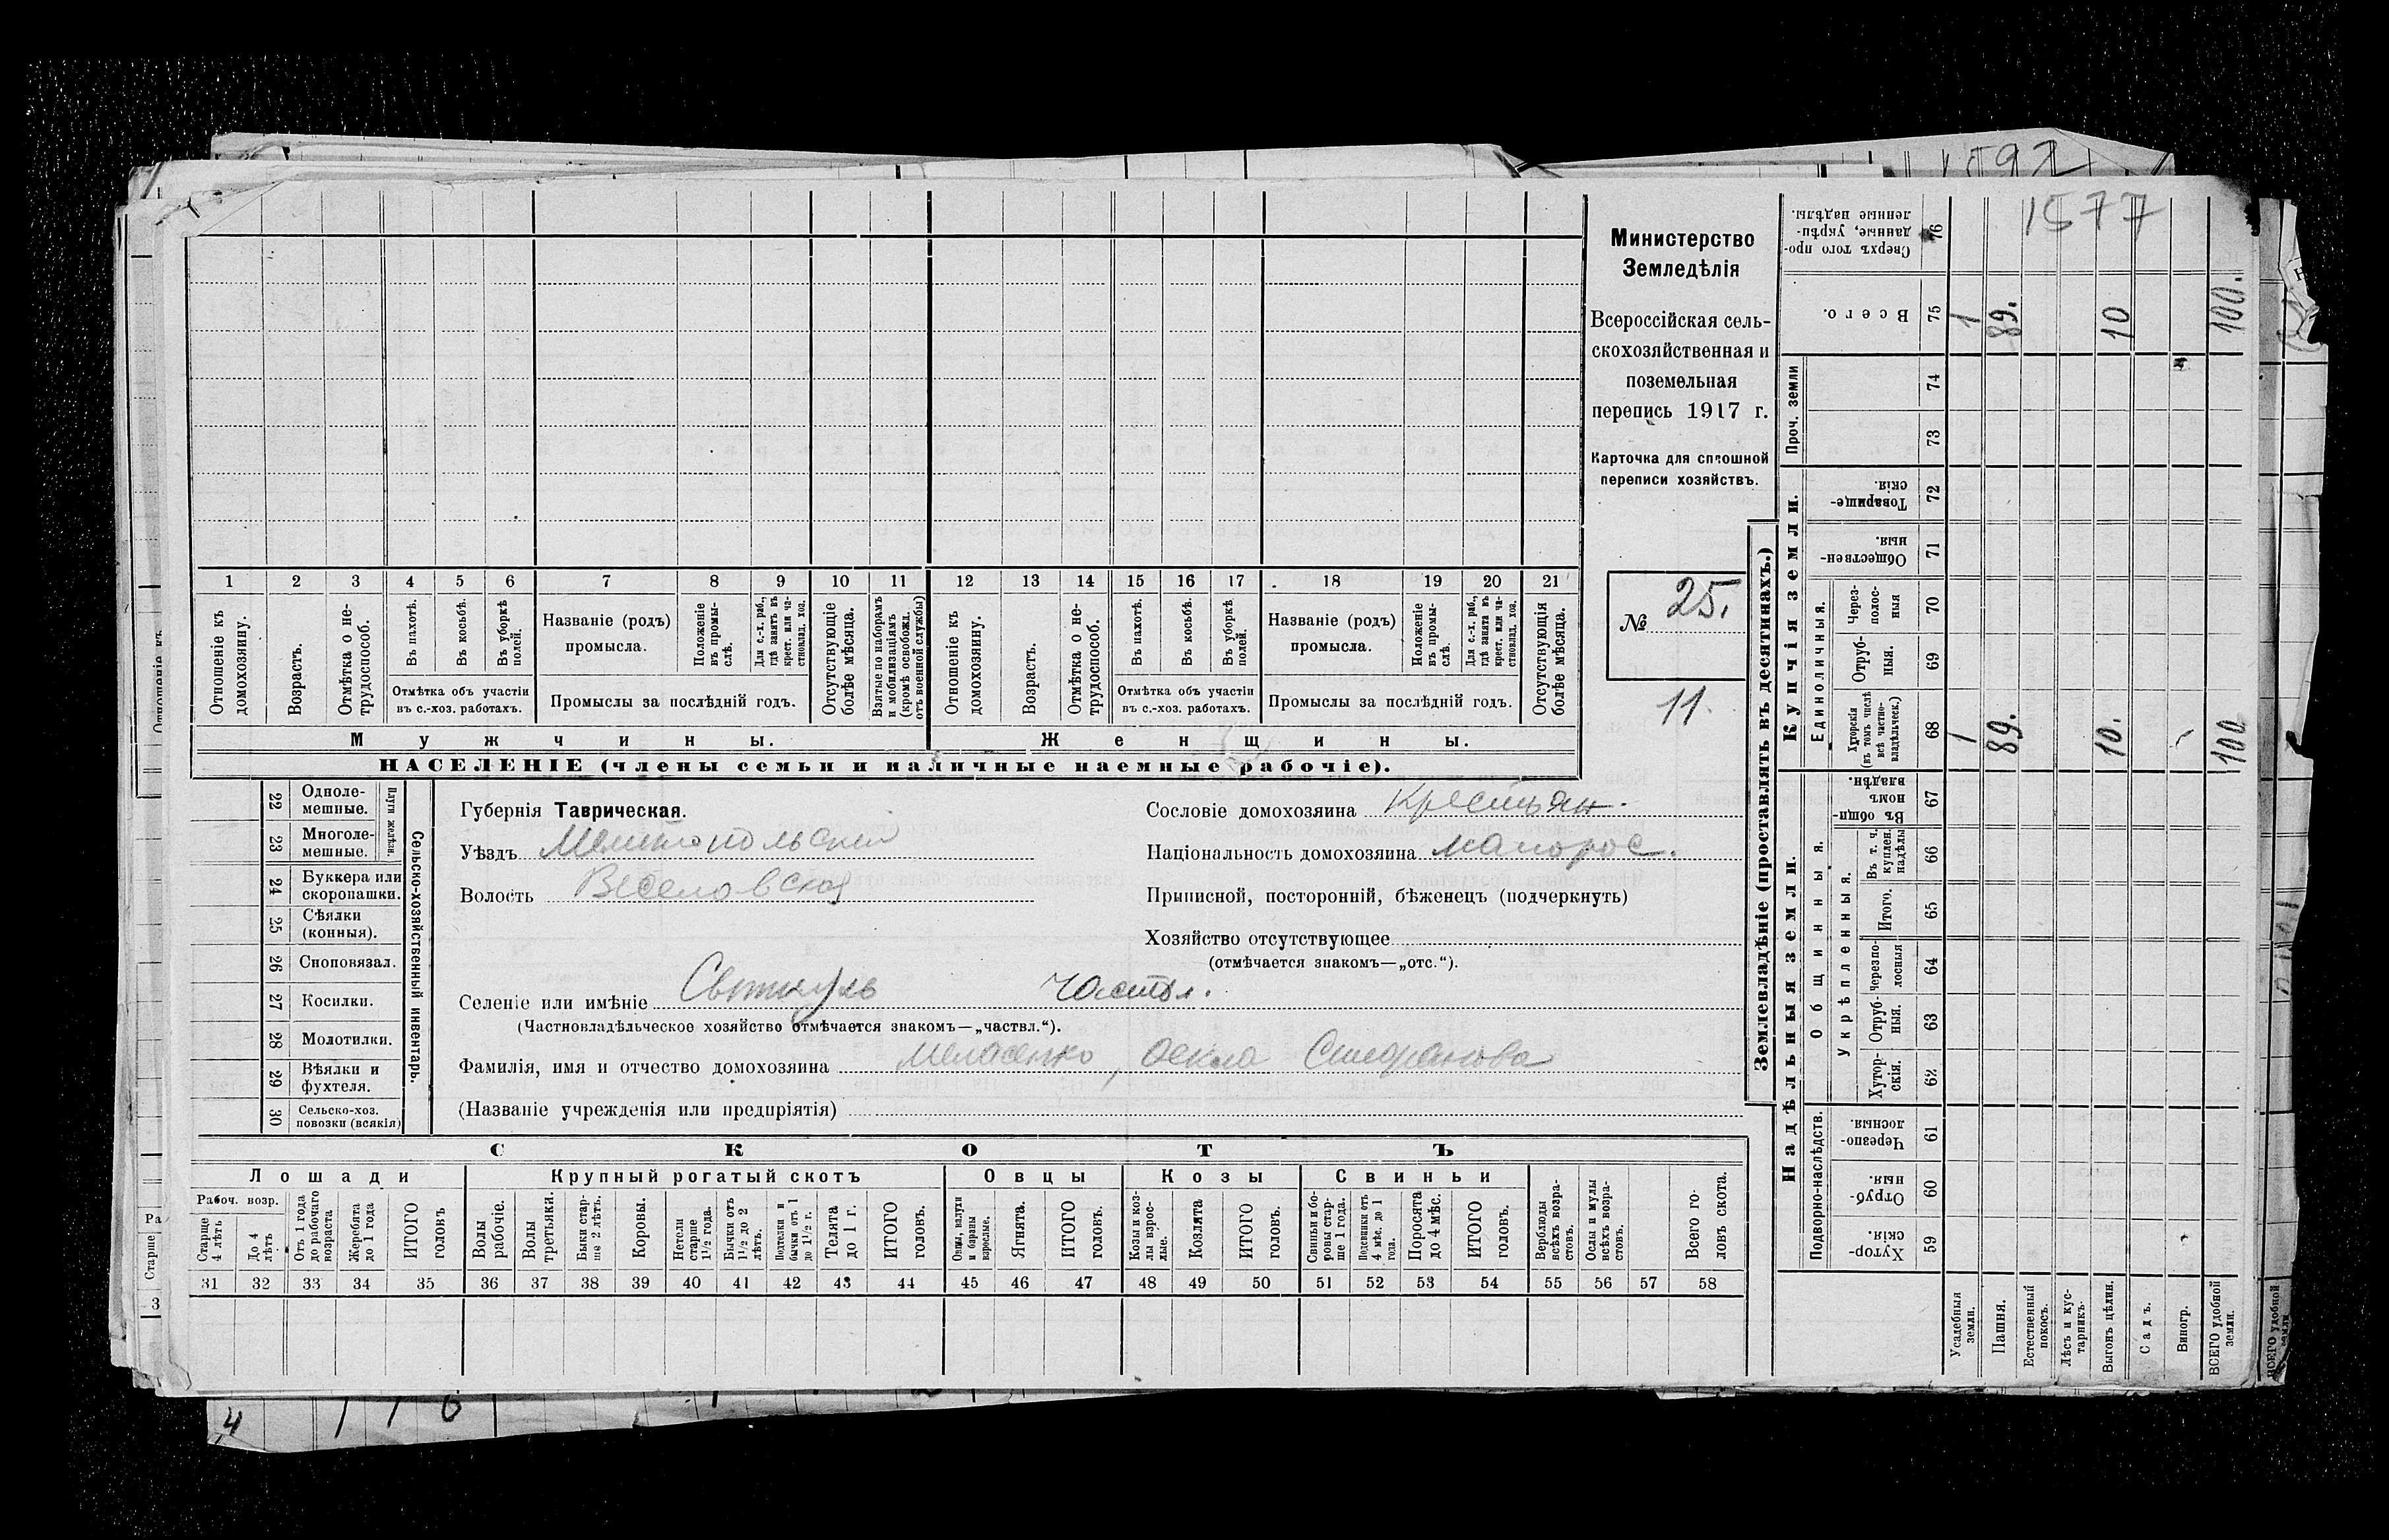 1577
Министерство
Земледѣлія
Всероссійская сель-
скохозяйственная и
поземельная
перепись 1917 г.
Карточка для сплошной
переписи хозяйствъ.
№ 25.
11.
1 2 3 4 5 6 7 8 9 10 11 12 13 14 15 16 17 18 19 20 21
Отношеніе къ домохозяину.
Возрастъ.
Отмѣтка о не-трудоспособ.
Въ пахотѣ.
Въ косьбѣ.
Въ уборкѣ полей.
Отмѣтка объ участіи
въ с.-хоз. работахъ.
Названіе (родъ)
промысла.
Положеніе въ промы-слѣ.
Для с.-х. раб., гдѣ занятъ въ крест. или ча-стновлад. хоз.
Промыслы за послѣдній годъ.
Отсутствующіе болѣе мѣсяца.
Взятые по наборамъ и мобилизаціямъ (кромѣ освобожд. отъ военной службы)
Отношеніе къ домохозяину.
Возрастъ.
Отмѣтка о не-трудоспособ.
Въ пахотѣ.
Въ косьбѣ.
Въ уборкѣ полей.
Отмѣтка объ участіи
въ с.-хоз. работахъ.
Названіе (родъ)
промысла.
Положеніе въ промы-слѣ.
Для с.-х. раб., гдѣ занята въ крест. или ча-стновлад. хоз.
Промыслы за послѣдній годъ.
Отсутствующія болѣе мѣсяца.
Мужчины. Женщины.
НАСЕЛЕНІЕ (члены семьи и наличные наемные рабочіе).
22 Одноле-мешные.
23 Многоле-мешные.
Плуги желѣзн.
24 Буккера или скоропашки.
25 Сѣялки (конныя).
26 Сноповязал.
27 Косилки.
28 Молотилки.
29 Вѣялки и фухтеля.
30 Сельско-хоз. повозки (всякія)
Сельско-хозяйственный инвентарь.
Губернія Таврическая.
Уѣздъ Мелитопольский
Волость Веселовская
Селеніе или имѣніе Частвл.
(Частновладѣльческое хозяйство отмѣчается знакомъ—„частвл.“).
Фамилія, имя и отчество домохозяина Степанова
(Названіе учрежденія или предпріятія)
Сословіе домохозяина Крестьян.
Національность домохозяина малорос.
Приписной, посторонній, бѣженецъ (подчеркнуть)
Хозяйство отсутствующее
(отмѣчается знакомъ—„отс.“).
СКОТЪ
Лошади Крупный рогатый скотъ Овцы Козы Свиньи
Рабоч. возр.
Старше 4 лѣтъ
До 4 лѣтъ
Отъ 1 года до рабочаго возраста
Жеребята до 1 года
ИТОГО головъ
Волы рабочіе.
Волы третьяки.
Быки стар-ше 2 лѣтъ.
Коровы.
Нетели старше 1½ года.
Бычки отъ 1½ до 2 лѣтъ.
Подтелки и бычки отъ 1 до 1½ г.
Телята до 1 г.
ИТОГО головъ.
Овцы, валухи и бараны взрослые.
Ягнята.
ИТОГО головъ.
Козы и коз-лы взрос-лые.
Козлята
ИТОГО головъ.
Свиньи и бо-ровы стар-ше 1 года.
Подсвинки отъ 4 мѣс. до 1 года.
Поросята до 4 мѣс.
ИТОГО головъ.
Верблюды всѣхъ возра-стовъ.
Ослы и мулы всѣхъ возра-стовъ.
Всего го-ловъ скота.
31 32 33 34 35 36 37 38 39 40 41 42 43 44 45 46 47 48 49 50 51 52 53 54 55 56 57 58
Землевладѣніе (проставлять въ десятинахъ.)
Надѣльныя земли. Купчія земли. Проч. земли
Подворно-наслѣдств. Общинныя. Единоличныя.
Укрѣпленныя.
Хутор-скія. 59
Отруб-ныя. 60
Черезпо-лосныя. 61
Хутор-скія. 62
Отруб-ныя. 63
Черезпо-лосныя 64
Итого. 65
Въ т. ч. куплен. надѣлы 66
Въ общин-номъ владѣн. 67
Хуторскія (въ томъ числѣ всѣ частно-владѣльческ.) 68
Отруб-ныя. 69
Через-полос-ныя 70
Обществен-ныя. 71
Товарище-скія. 72
73
74
Всего. 75
Сверхъ того про-данные, укрѣп-ленные надѣлы. 76
Усадебныя земли. 1 1
Пашня. 89. 89.
Естественный покосъ.
Лѣсъ и кус-тарникъ.
Выгонъ цѣлин. 10. 10
Садъ.
Виногр.
ВСЕГО удобной земли. 100 100.